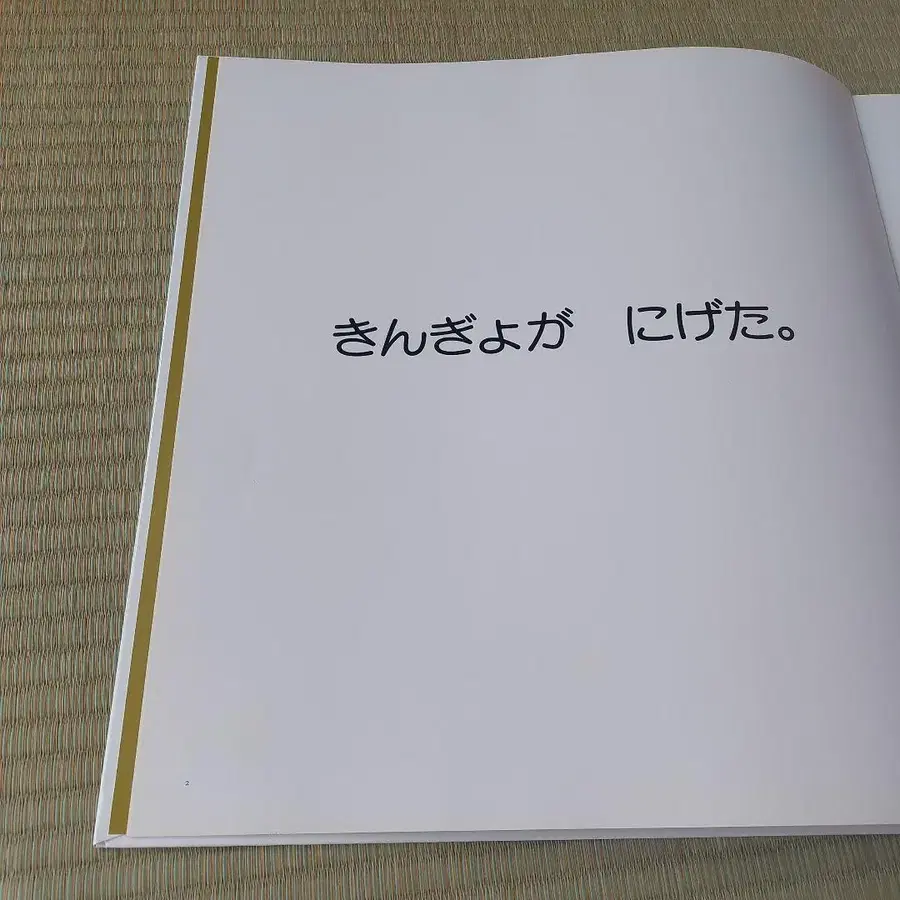 きんぎょが　にげた。
2